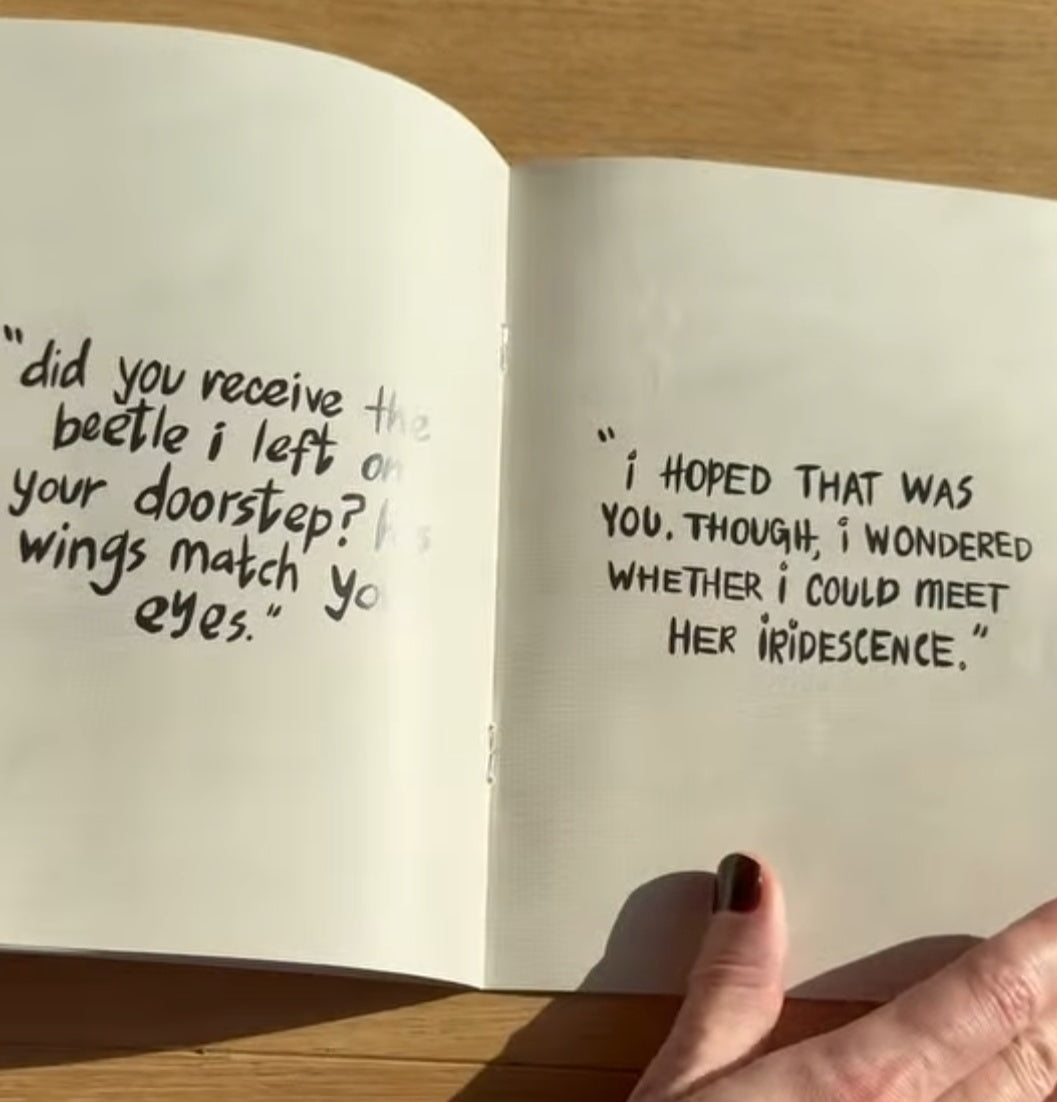 "did you receive the
beetle i left on
your doorstep?
wings match
eyes."
"i HOPED THAT WAS
YOU. THOUGH, i WONDERED
WHETHER i COULD MEET
HER iRiDESCENCE."